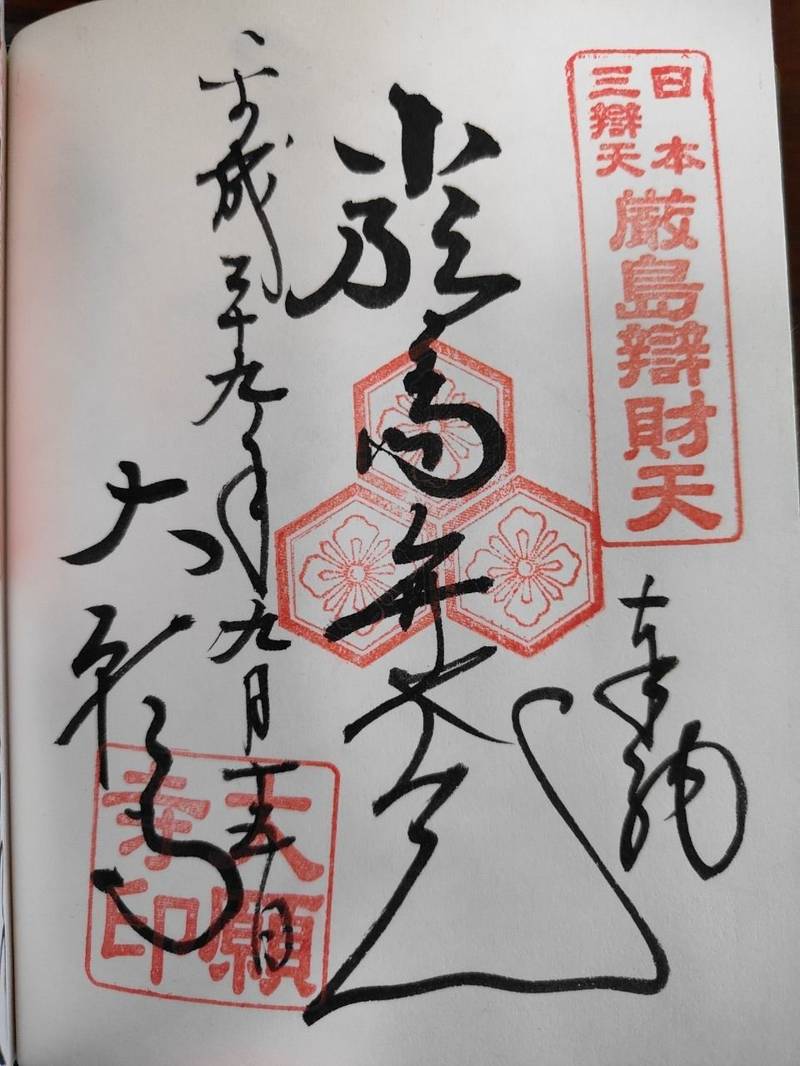 日本
三辯天
厳島辯財天
奉納
厳島弁才天
平成二十九年九月十五日
大願寺
大願
寺印